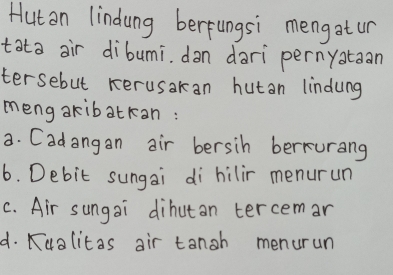 Hutan lindung berfungsi mengatur
tata air dibumi. dan dari pernyataan
tersebut kerusakan hutan lindung
mengakibatkan :
a. Cadangan air bersih berkurang
b. Debit sungai di hilir menurun
c. Air sungai dihutan tercemar
d. Kualitas air tanah menurun